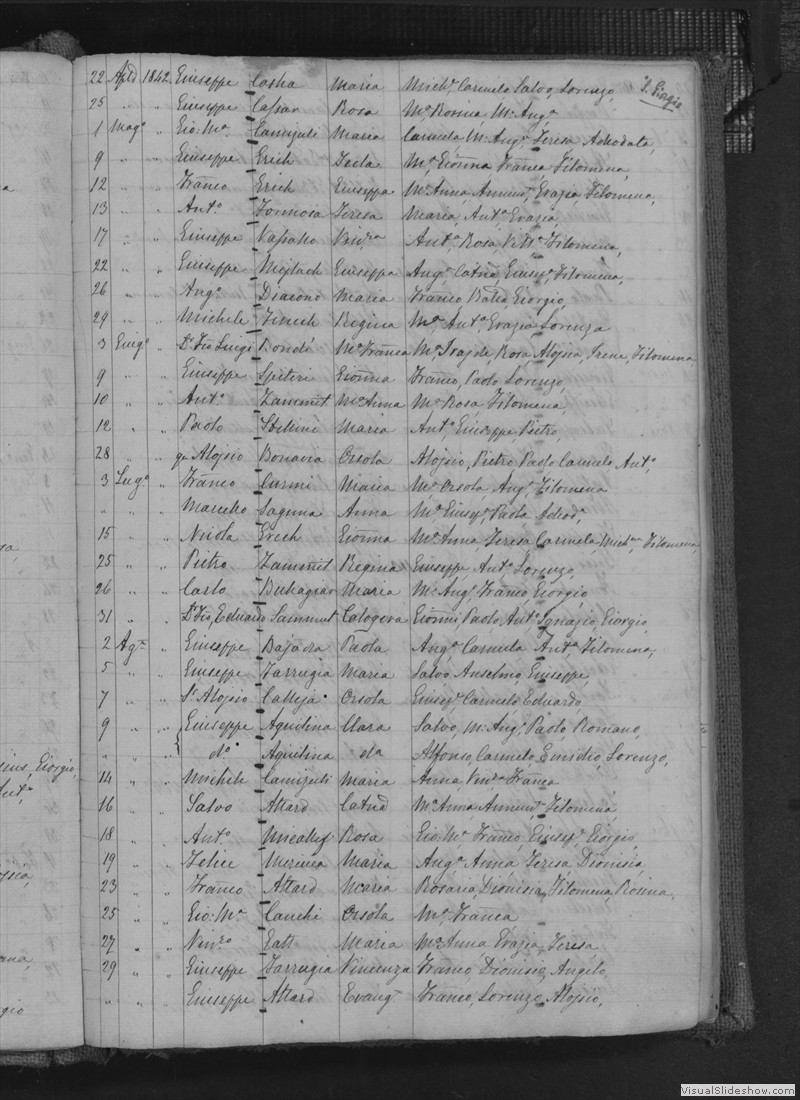 22 April 1842 Giuseppe Casha Maria Mich.e Carmelo Salvo, Lorenzo, S. Giorgio
25 " " Giuseppe Cassar Rosa M.a Rosina, M. Ang.a
1 Mag.o " Gio: M.a Camijuli Maria Carmela, M. Ang.a Teresa Adeodata,
9 " " Giuseppe Grech Tecla M.a Gionna Franca Filomena,
12 " " Franco Grech Giuseppa M. Anna, Annun.a Grazia Filomena,
13 " " Ant.o Formosa Teresa Maria, Ant.a Grazia
17 " " Giuseppe Vassallo Vin.za Ant.a Rosa, Vitt.a Filomena,
22 " " Giuseppe Mijlach Giuseppa Ang.a Catna, Giusep.a Filomena,
26 " " Ang.o Diacono Maria Franco Batta, Giorgio,
29 " " Michele Finech Regina M.a Ant.a Grazia Lorenza
3 Giug.o " Dr Fio Luigi Bonde M.a Franca Rosa, Aloisia, Irene, Filomena
9 " " Giuseppe Spiteri Gionna Franco, Paolo Lorenzo,
10 " " Ant.o Zammit M.a Anna M.a Rosa Filomena,
12 " " Paolo Maria Ant.o Giuseppe, Pietro
28 " " Aloisio Bonavia Orsola Aloisio, Pietro Paolo Carmelo Ant.o
3 Lug.o " Franco Curmi Maria M.a Orsola, Ang.a Filomena
" " " Marcello Laguna Anna M.a Giusep.a Paola, Adeod.a
15 " " Nicola Grech Gionna M.a Anna Teresa Carmela, Mich.na Filomena,
25 " " Pietro Zammit Regina Giuseppe, Ant.o Lorenzo,
26 " " Carlo Buhagiar Maria M. Ang.o Franco Giorgio,
31 " " Dr Fio, Eduardo Sammut Calogera Gionni, Paolo, Ant.o Ignazio, Giorgio,
2 Ag.to " Giuseppe Bajada Paola Ang.a Carmela Ant.a Filomena,
5 " " Giuseppe Farrugia Maria Salvo Anselmo Giuseppe
7 " " Sr Aloisio Calleja Orsola Giusep.e Carmelo Eduardo,
9 " " Giuseppe Aquilina Clara Salvo, M. Ang.o Paolo Romano,
" " " do. Aquilina da Alfonso, Carmelo, Emidio, Lorenzo,
14 " " Michele Camijuli Maria Anna, Vin.za Franca
16 " " Salvo Attard Catna M.a Anna Annun.a Filomena
18 " " Ant.o Micallef Rosa Gio: M.a Franco, Giusep.e Giorgio
19 " " Felice Mercieca Maria Ang.a Anna Teresa Dionisia,
23 " " Franco Attard Maria Rosaria Dionisia, Filomena, Rosina
25 " " Gio: M.a Cauchi Orsola M.a Franca
27 " " Vin.zo Gatt Maria M.a Anna Grazia, Teresa
29 " " Giuseppe Farrugia Vincenza Franco, Dionisio, Angelo,
" " " Giuseppe Attard Evang.a Franco, Lorenzo Aloisio,
VisualSlideshow.com